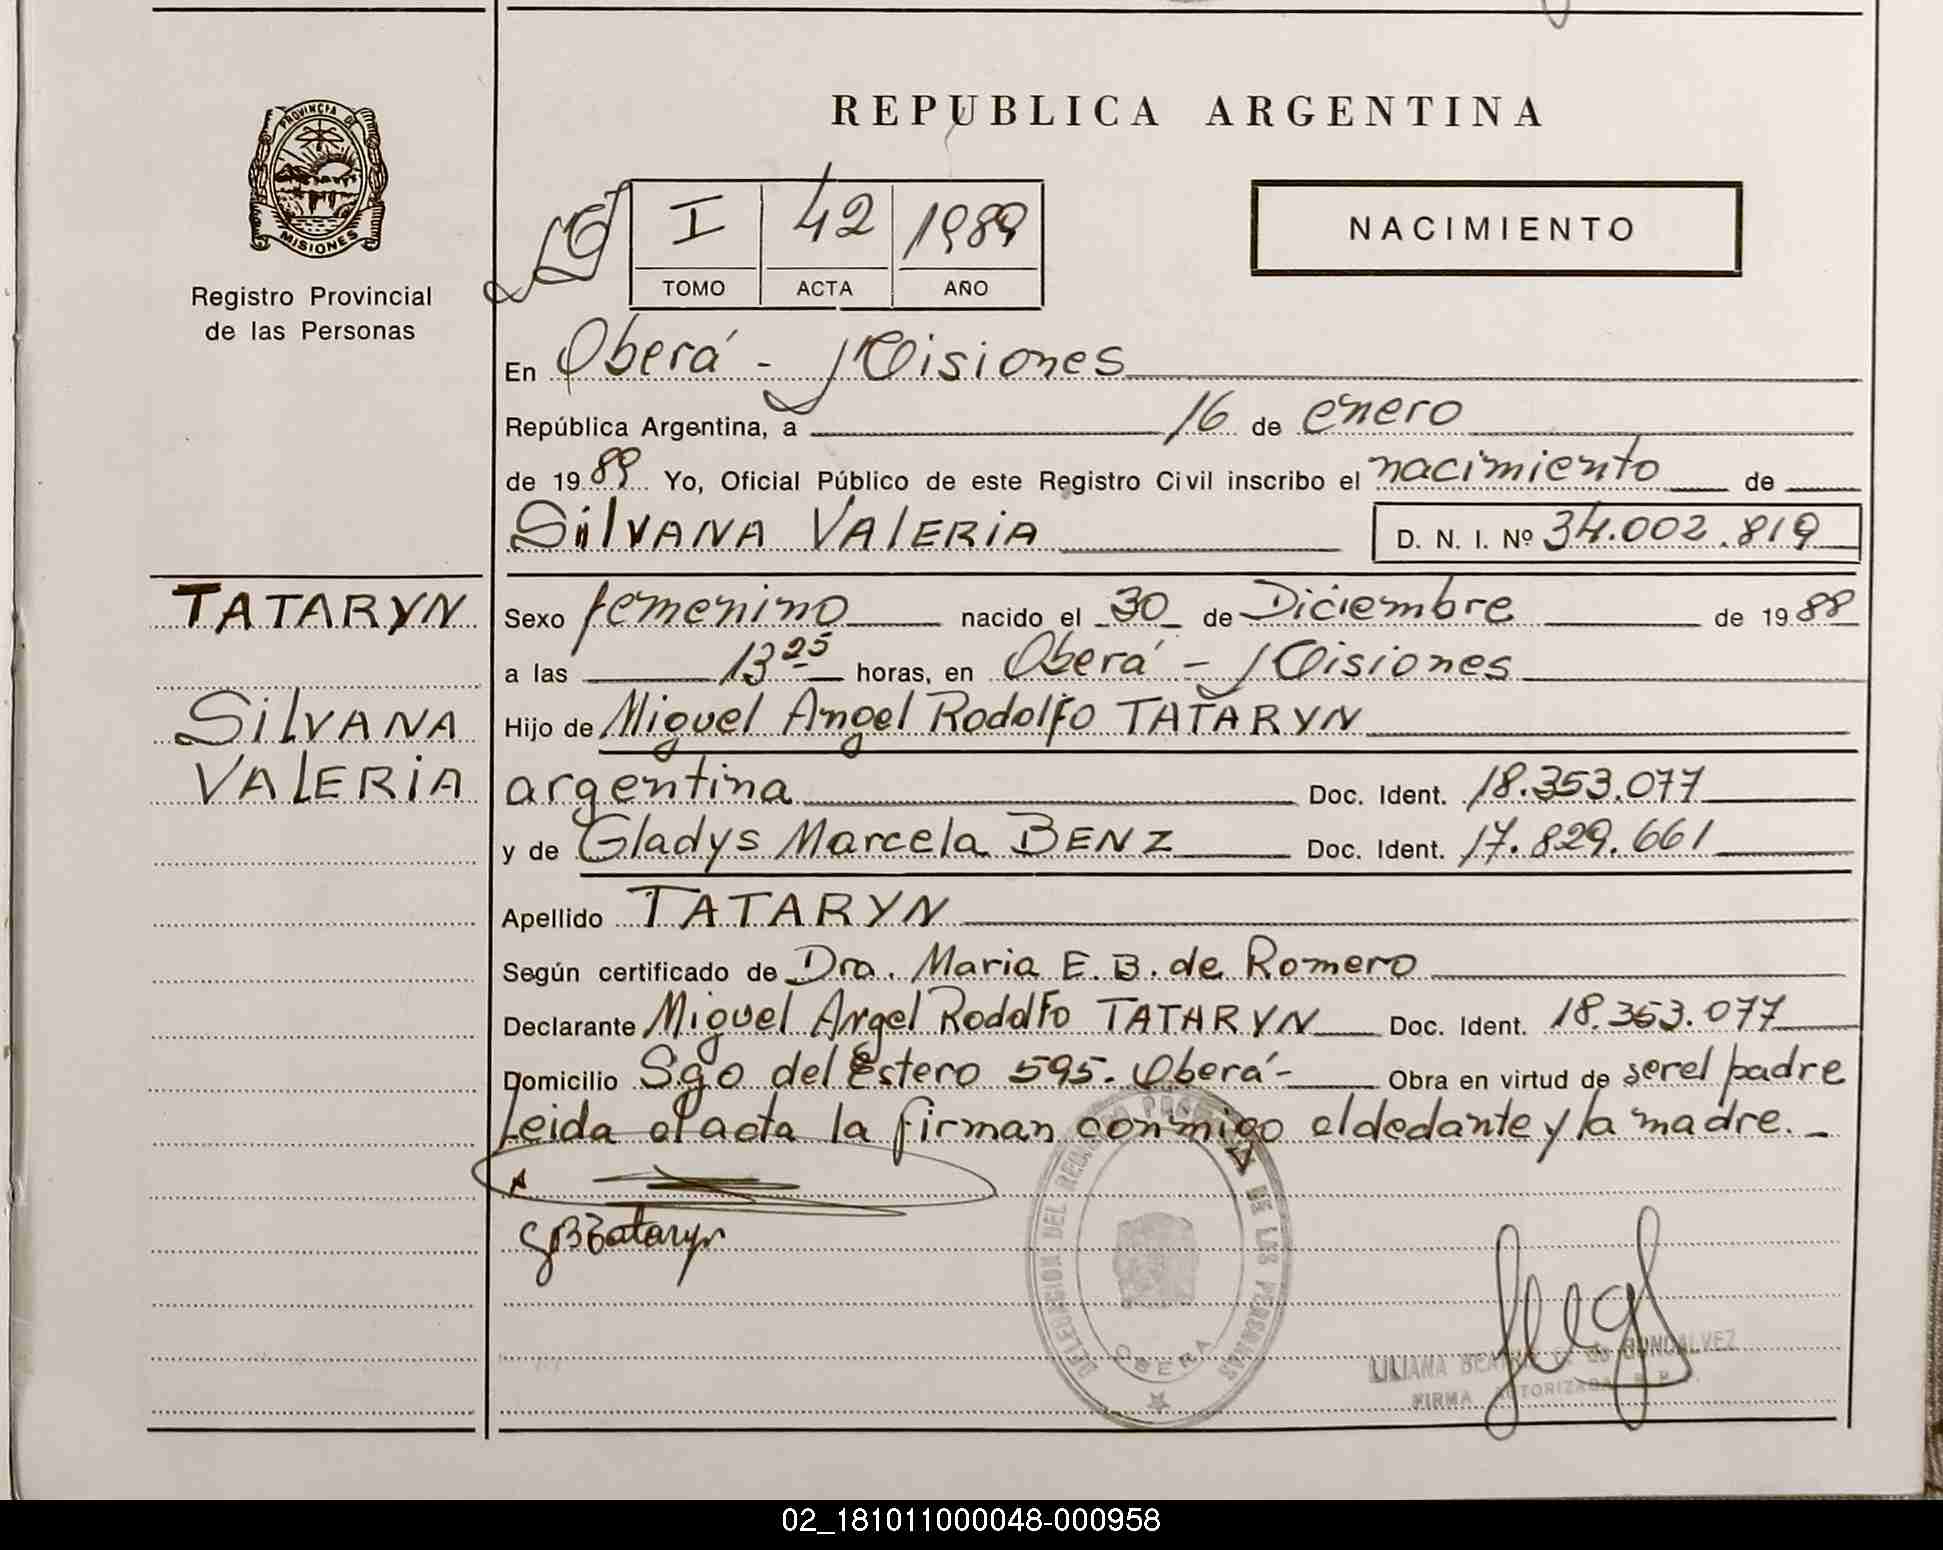 REPUBLICA ARGENTINA
PROVINCIA DE
MISIONES
Registro Provincial
de las Personas
I 42 1989
TOMO ACTA AÑO
NACIMIENTO
En Oberá - Misiones
República Argentina, a 16 de enero
de 1989 Yo, Oficial Público de este Registro Civil inscribo el nacimiento de
Silvana Valeria D. N. I. Nº 34.002.819
TATARYN
Silvana
Valeria
Sexo femenino nacido el 30 de Diciembre de 1988
a las 13 25 horas, en Oberá - Misiones
Hijo de Miguel Angel Rodolfo TATARYN
argentina Doc. Ident. 18.353.077
y de Gladys Marcela BENZ Doc. Ident. 17.829.661
Apellido TATARYN
Según certificado de Dra. Maria E. B. de Romero
Declarante Miguel Angel Rodolfo TATARYN Doc. Ident. 18.353.077
Domicilio Sgo del Estero 595. Oberá - Obra en virtud de ser el padre
Leida el acta la firman conmigo el dedante y la madre. -
GBTataryn
DELEGACION DEL REGISTRO PROVINCIAL DE LAS PERSONAS
OBERA
LILIANA BEATRIZ DE GONCALVEZ
FIRMA AUTORIZADA R. P. P.
02_181011000048-000958